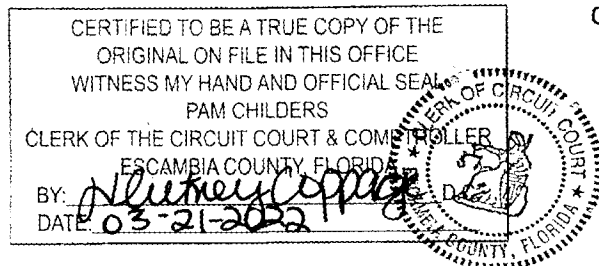 CERTIFIED TO BE A TRUE COPY OF THE
ORIGINAL ON FILE IN THIS OFFICE
WITNESS MY HAND AND OFFICIAL SEAL
PAM CHILDERS
CLERK OF THE CIRCUIT COURT & COMPTROLLER
ESCAMBIA COUNTY, FLORIDA
BY: Whitney Coppage D.C.
DATE: 03-21-2022
CLERK OF CIRCUIT COURT
ESCAMBIA COUNTY, FLORIDA